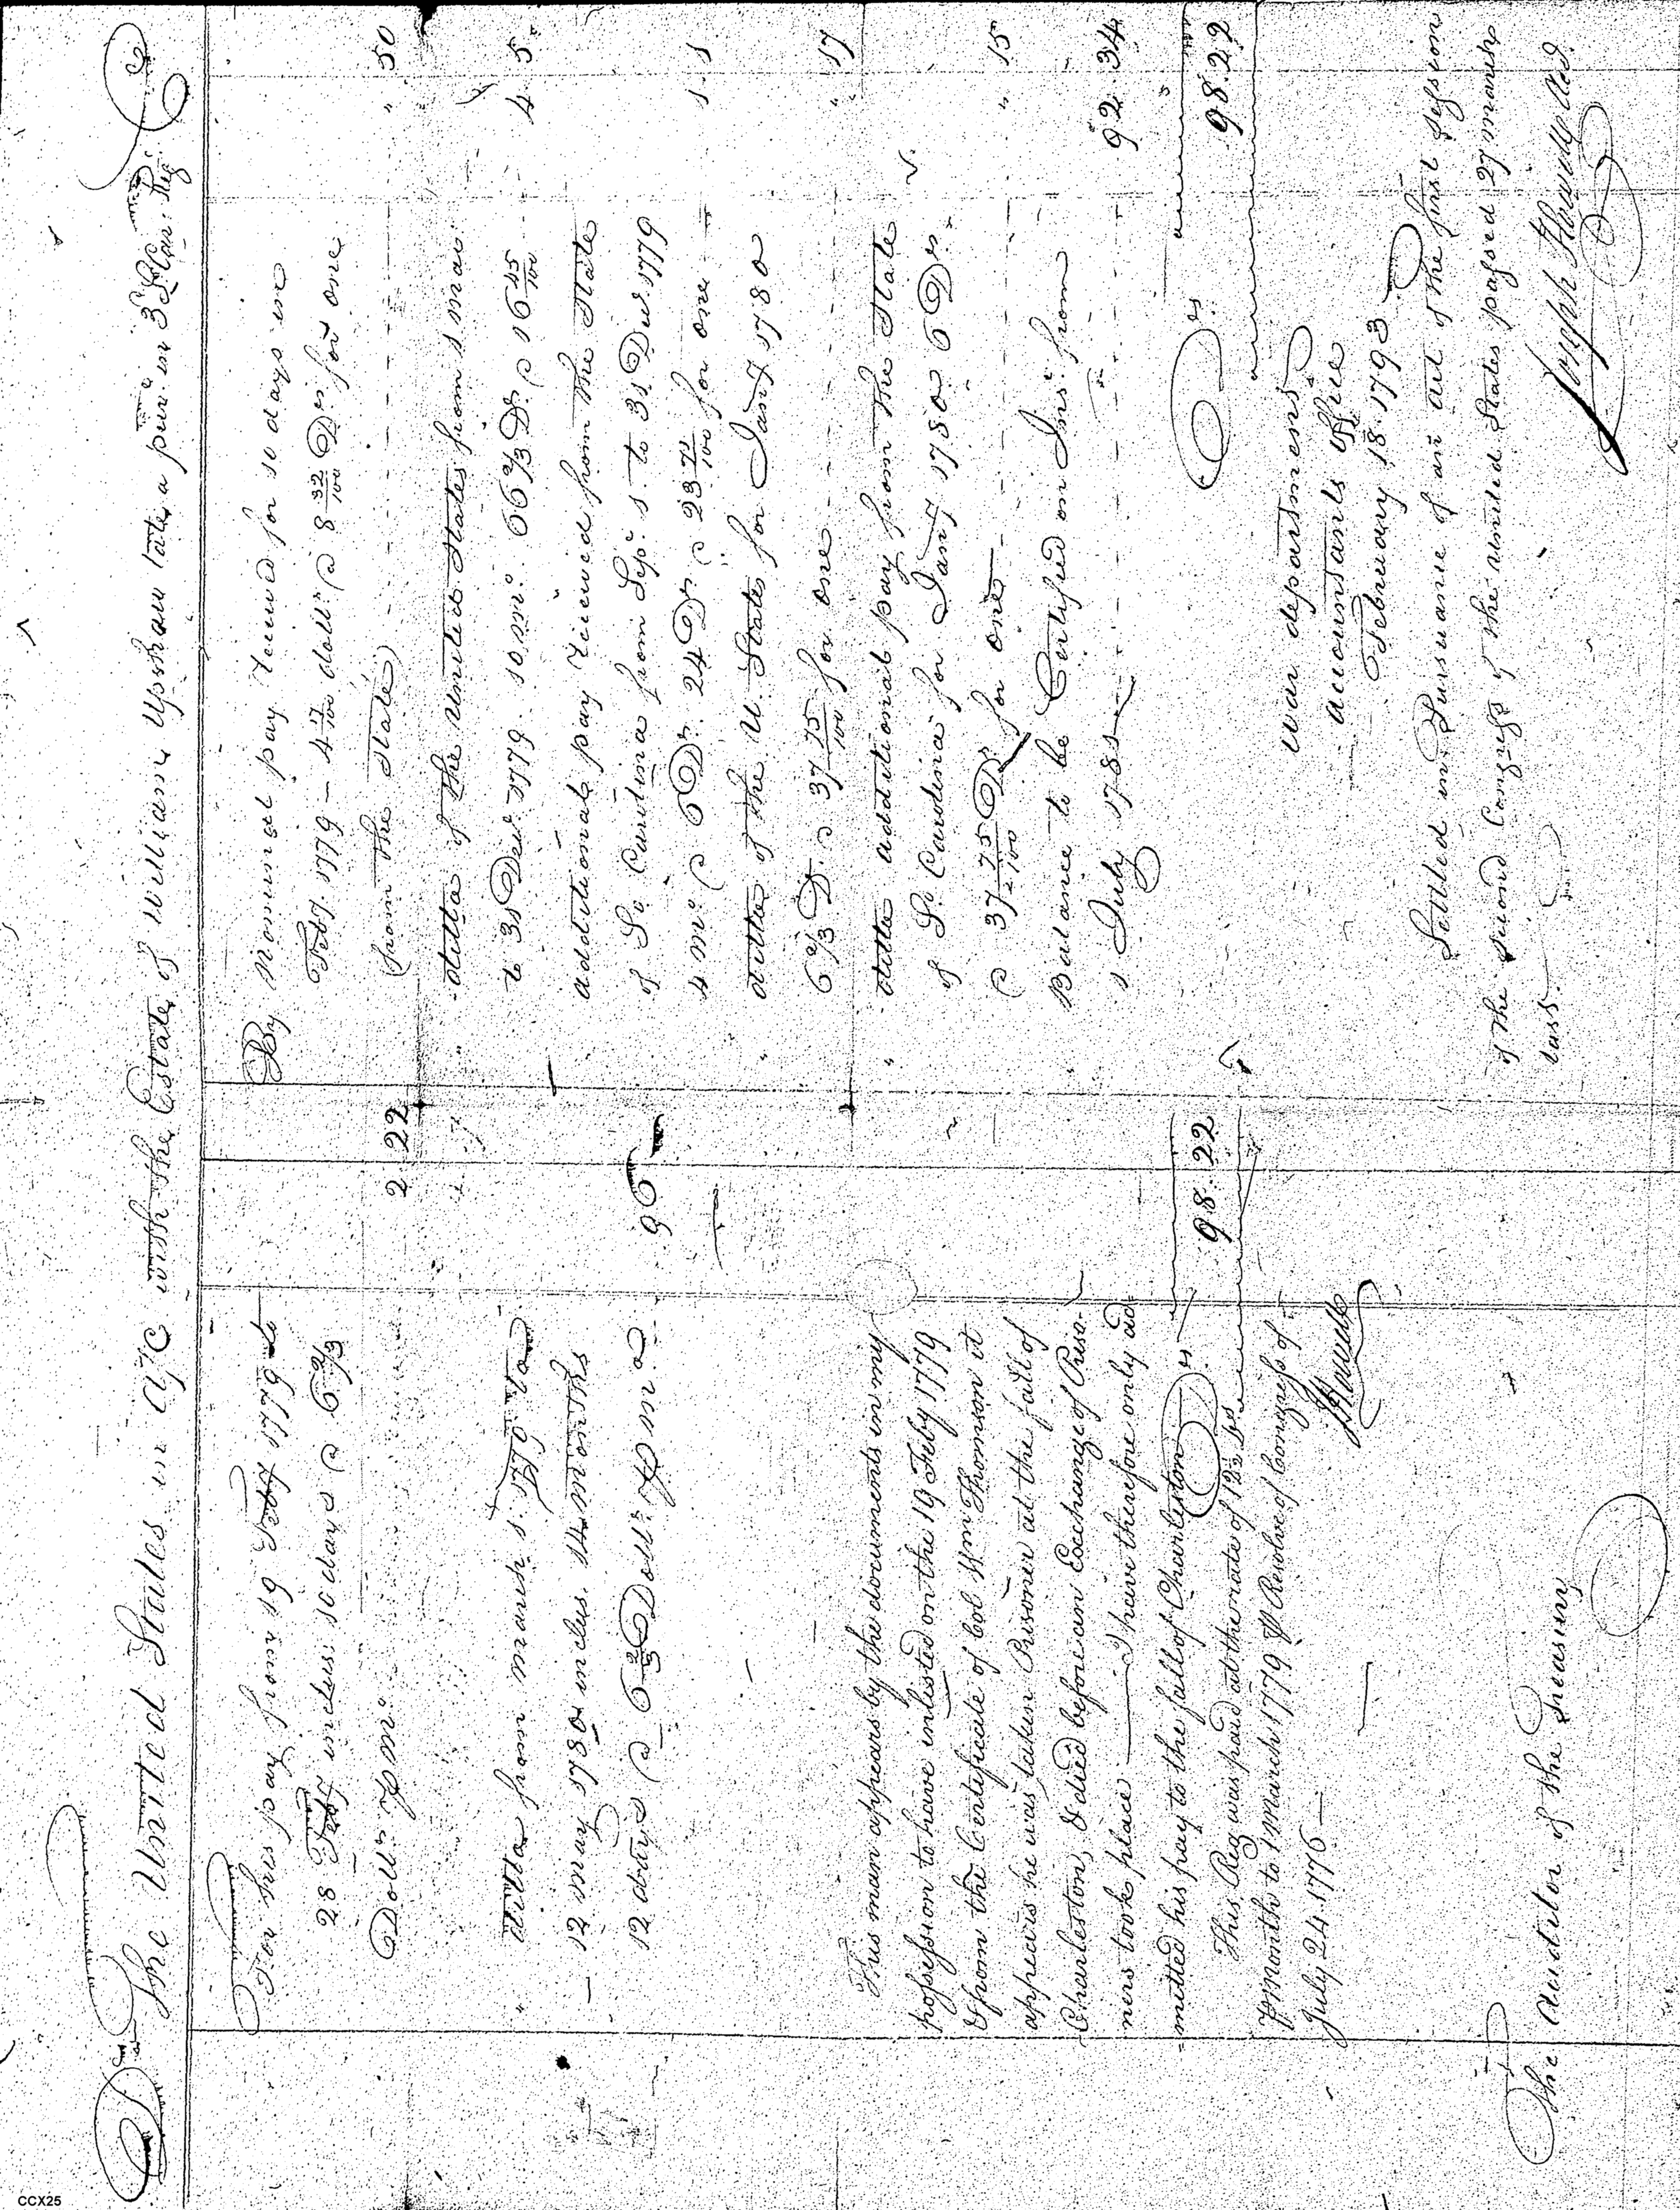 Dr The United States in a/c with the Estate of William Upshaw late a private in 3 So Car: Reg. Cr
For his pay from 19 Feby 1779 to
28 Feby inclus: 10 days @ 6 2/3
Dolls p mo. 2 22
" ditto from march 1. 1779 to
12 may 1780 inclus. 14 months
12 days @ 6 2/3 Dolls p mo 96
This man appears by the documents in my
possession to have inlisted on the 19 Feby 1779
& from the Certificate of Col Wm Thomson it
appears he was taken Prisoner at the fall of
Charleston, & died before an Exchange of Priso-
ners took place — I have therefore only ad-
=mitted his pay to the fall of Charleston
Drs 98. 22
This Reg was paid at the rate of 12 1/2
p month to 1 March 1779 p Resolve of Congress of
July 24. 1776 —
JHowell
The Auditor of the Treasury
By Nominal pay received for 10 days in
Feby. 1779 — 4 17/100 dolls @ 8 32/100 Drs for one
(from the State) " 50
" ditto of the United States from 1 mar
to 31 Decr 1779. 10 mo. 66 2/3 D. @ 16 45/100 4 5
additional pay received from the State
of So Carolina from Sepr 1. to 31 Decr 1779
4 mo. @ 6 Drs 24 Drs @ 23 71/100 for one 1. 1
" ditto of the U. States for Jany 1780
6 2/3 D. @ 37 75/100 for one " 17
" ditto additional pay from the State
of So Carolina for Jany 1780. 6 Drs
@ 37 75/100 Drs for one " 15
" Balance to be Certified on Int. from
1 July 1781 92 34
Drs 98. 22
War department
Accountants Office
February 18. 1793
Settled in Pursuance of an act of the first session
of the second Congress of the United States passed 27 march
last.
Joseph Howell acct.
CCX25